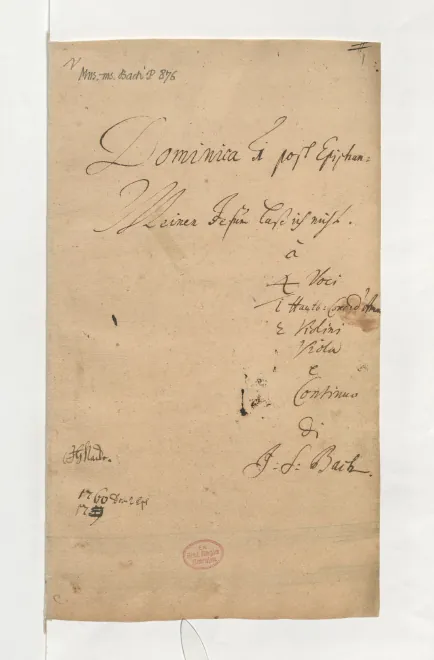 Mus. ms. Bach P 876
1
Dominica I post Epiphan:
Meinen Jesum laß ich nicht.
à
4 Voci
1 Hautb: Concert
2 Violini
Viola
e
Continuo
di
J: S: Bach.
1760